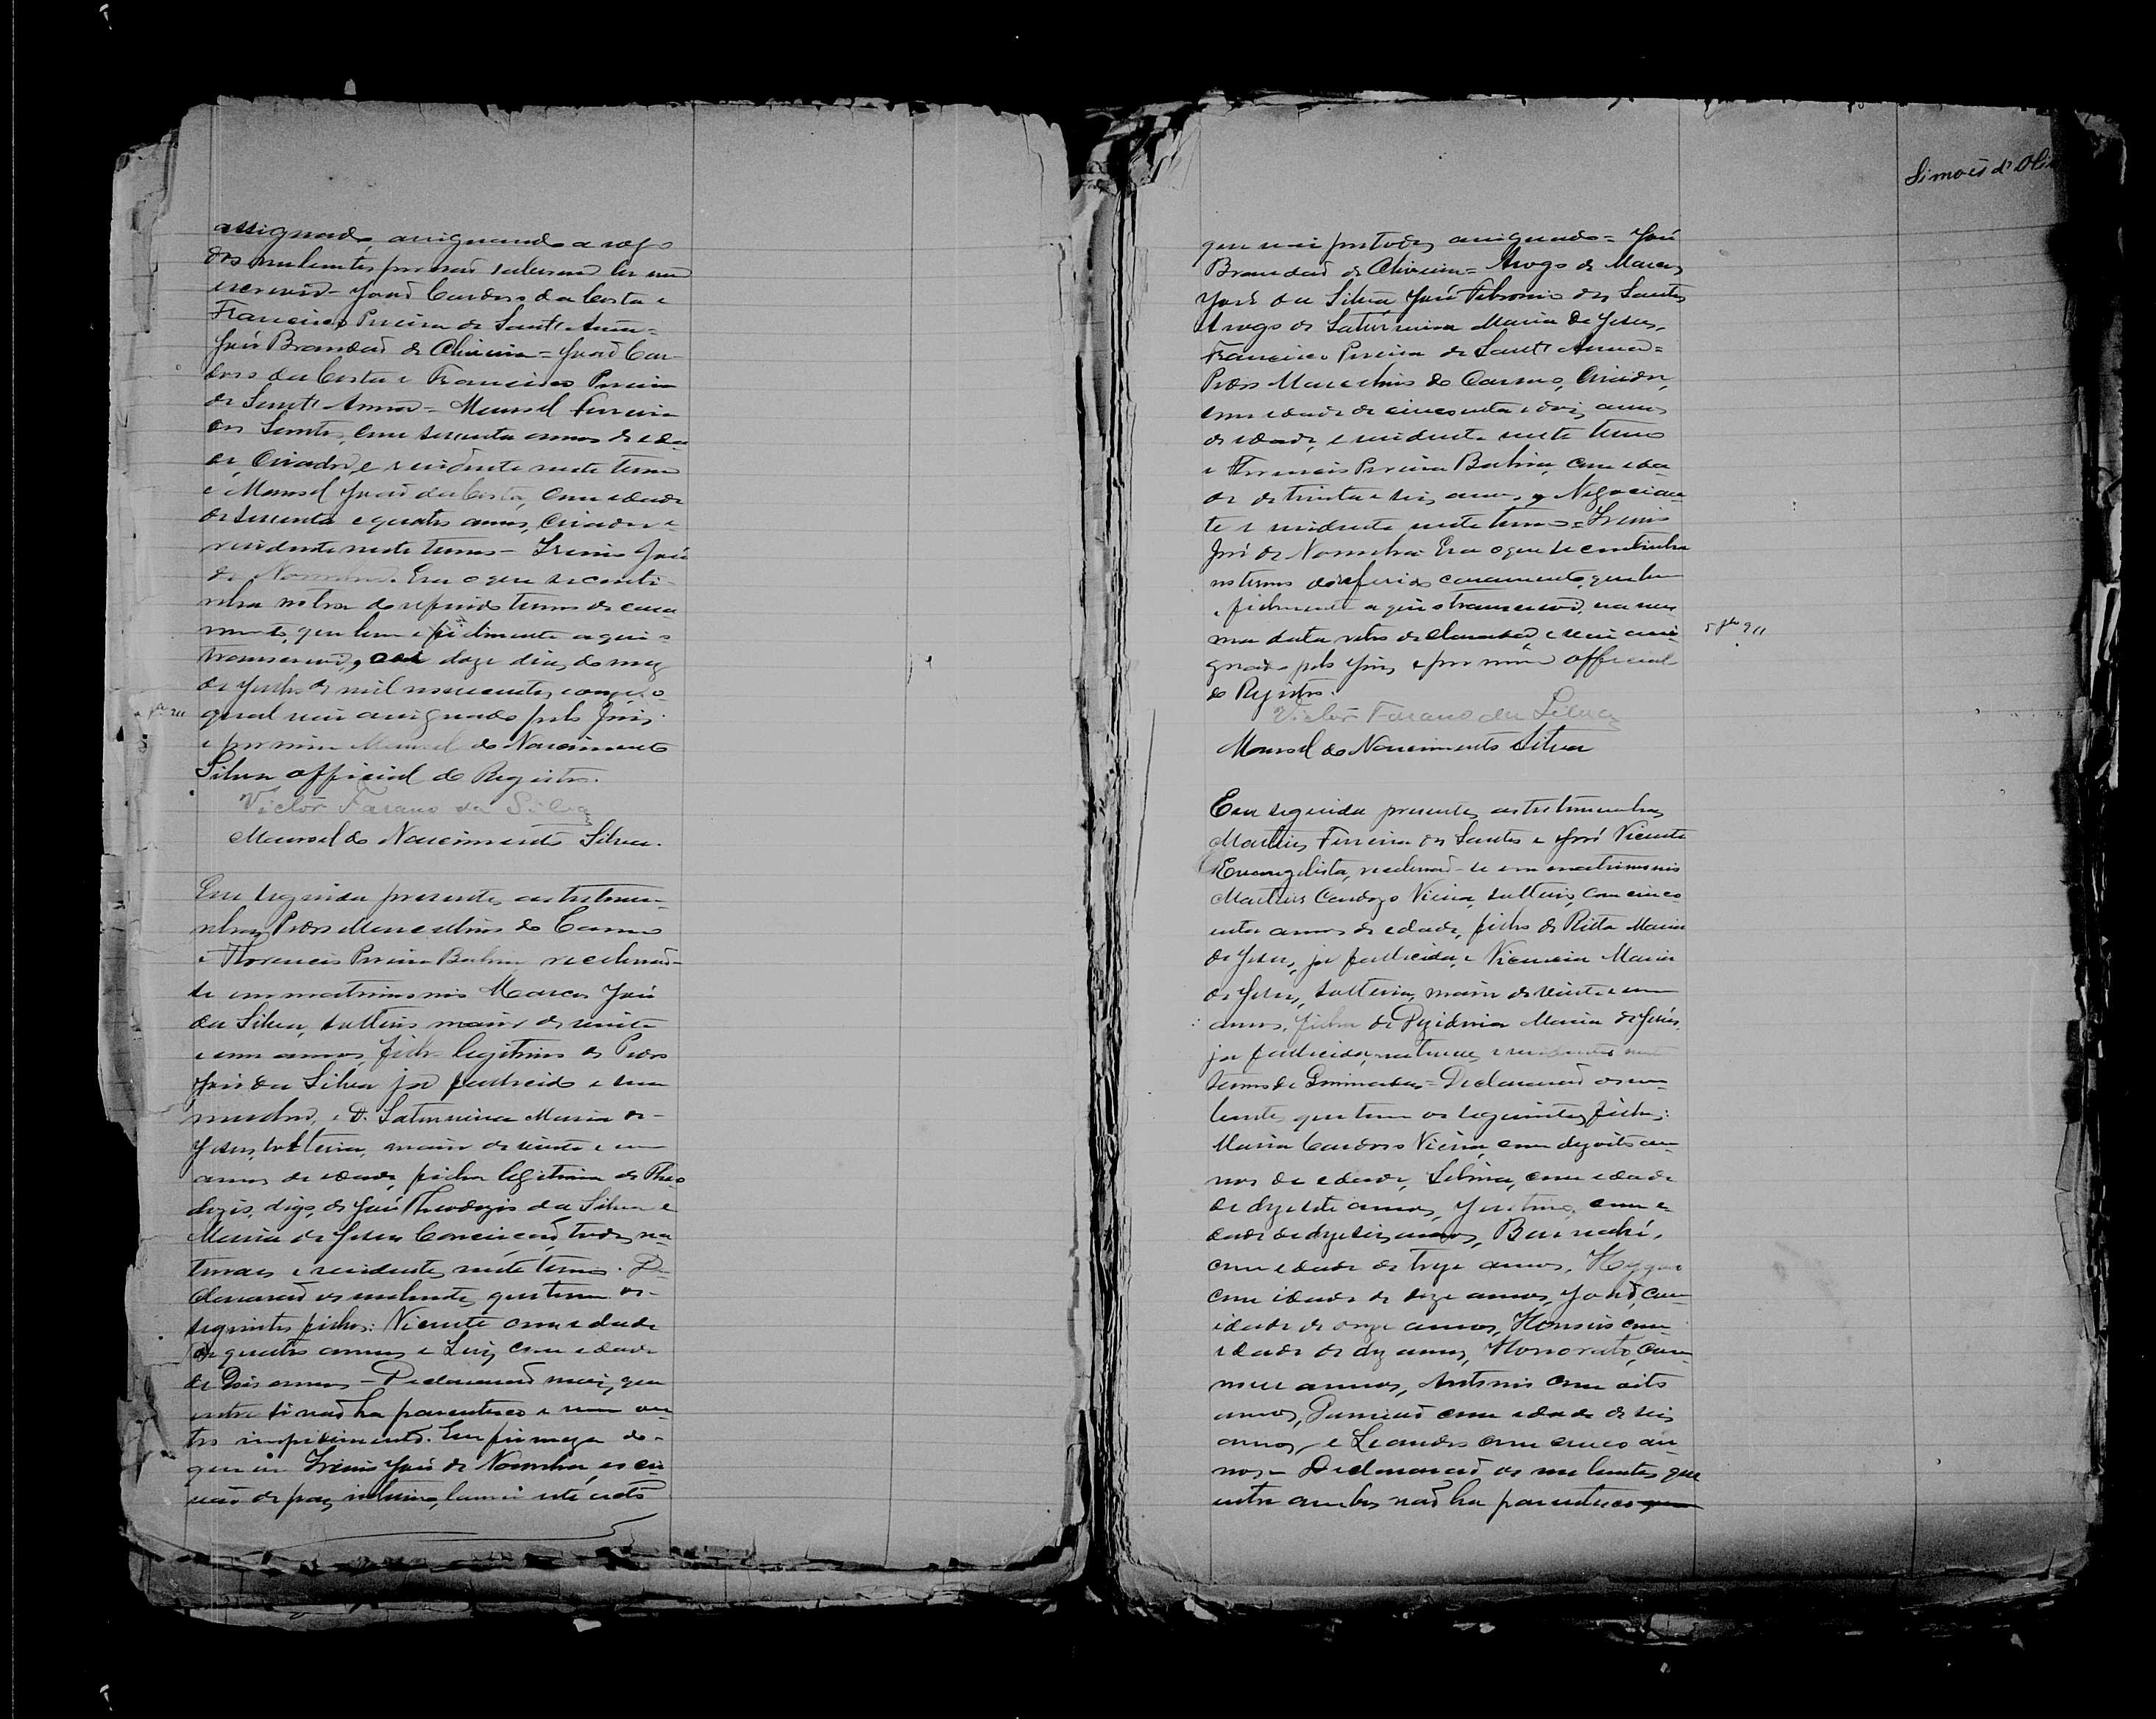 assignado, assignando a rogo
dos nubentes por não saberem ler nem
escrever - João Cardoso da Costa e
Francisco Pereira de Sant'Anna =
José Brandão de Oliveira = João Car-
doso da Costa e Francisco Pereira
de Sant'Anna = Manoel Ferreira
dos Santos, com sesenta annos de eda-
de, Criador, e residente neste termo
e Manoel João da Costa, com edade
de sesenta e quatro annos, Criador e
residente neste termo - Irenio José
de Noronha. Era o que se conti-
nha no livro do referido termo de casa-
mento, que bem e fielmente aqui o
transcrevi, aos doze dias do mez
de Julho de mil novecentos e onze, o
qual vai assignado pelo Juiz
e por mim Manoel do Nascimento
Silva official do Registro.
Victor Farano da Silva
Manoel do Nascimento Silva.
Em seguida presentes as testemu-
nhas Pedro Marcelino do Carmo
e Florencio Pereira Bahia receberão-
se em matrimonio Marcos José
da Silva, solteiro maior de vinte
e um annos, filho legitimo de Pedro
José da Silva já fallecido e sua
mulher, e D. Saturnina Maria de
Jesus, solteira, maior de vinte e um
annos de edade, filha legitima de Theo
dozio, digo, de José Theodozio da Silva e
Maria de Jesus Conceição, todos na
turaes e residentes neste termo. De-
clararão os nubentes, que tem os
seguintes filhos: Vicente com edade
de quatro annos e Luiz com edade
de dois annos - Declararão mais, que
entre si não ha parentesco e nem ou-
tro impedimento. Em firmeza do
que eu Irenio José de Noronha, escri-
vão de paz interino, lavrei este acto
Simões d'Oli
que vai por todos assignado = José
Brandão de Oliveira = A rogo de Marcos
José da Silva José Febronio dos Santos
A rogo de Saturnina Maria de Jesus,
Francisco Pereira de Sant'Anna =
Pedro Marcelino do Carmo, Criador,
com edade de cincoenta e dois annos
de edade, e residente neste termo
e Florencio Pereira Bahia, com eda
de de trinta e seis annos, Negocian-
te e residente neste termo = Irenio
José de Noronha. Era o que se continha
no termo do referido casamento, que bem
e fielmente aqui o transcrevi, na mes
ma data retro declarada, e vai assi-
gnado pelo Juiz, e por mim official
do Registro.
Victor Farano da Silva
Manoel do Nascimento Silva
Em seguida presentes as testemunhas
Martins Ferreira dos Santos e José Vicente
Evangelista, receberão-se em matrimonio
Martins Cardozo Vieira, solteiro, com cinco
enta annos de edade, filho de Ritta Maria
de Jesus, já fallecida, e Vicencia Maria
de Jesus, solteira, maior de vinte e um
annos, filha de Maria de Jesus,
já fallecida, naturaes e residentes neste
termo de Declararão os nu-
bentes que tem os seguintes filhos:
Maria Cardoso Vieira, com dezoito an-
nos de edade, Sabina, com edade
de dezesete annos, Justino, com e
dade de dezeseis annos,
com edade de treze annos,
com idade de doze annos, João, com
idade de onze annos, com
edade de dez annos, Honorato, com
nove annos, Antonio com oito
annos, Damião com edade de seis
annos, e Leandro com cinco an-
nos - Declararão os nubentes que
entre ambos não ha parentesco